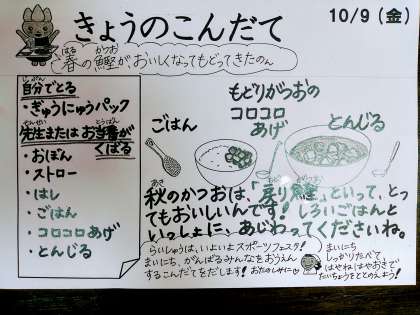 きょうのこんだて
10/9(金)
春の鰹が、おいしくなってもどってきたのん
はる かつお
自分でとる
じぶん
・ぎゅうにゅうパック
先生または お当番が
せんせい とうばん
くばる
・おぼん
・ストロー
・はし
・ごはん
・コロコロあげ
・とんじる
もどりがつおの
コロコロ
あげ
ごはん
とんじる
秋のかつおは、「戻り鰹」といって、とっ
てもおいしいんです！しろいごはんと
いっしょに、あじわってくださいね。
らいしゅうは、いよいよスポーツフェスタ！
まいにち、がんばるみんなをおうえん
するこんだてをだします！おたのしみに
まいにち
しっかりたべて、
はやねはやおきで
たいちょうをととのえよう！